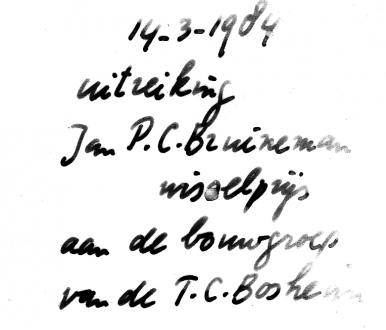 14-3-1984
uitreiking
Jan P.C. Bruineman
wisselprijs
aan de bouwgroep
van de T.C.